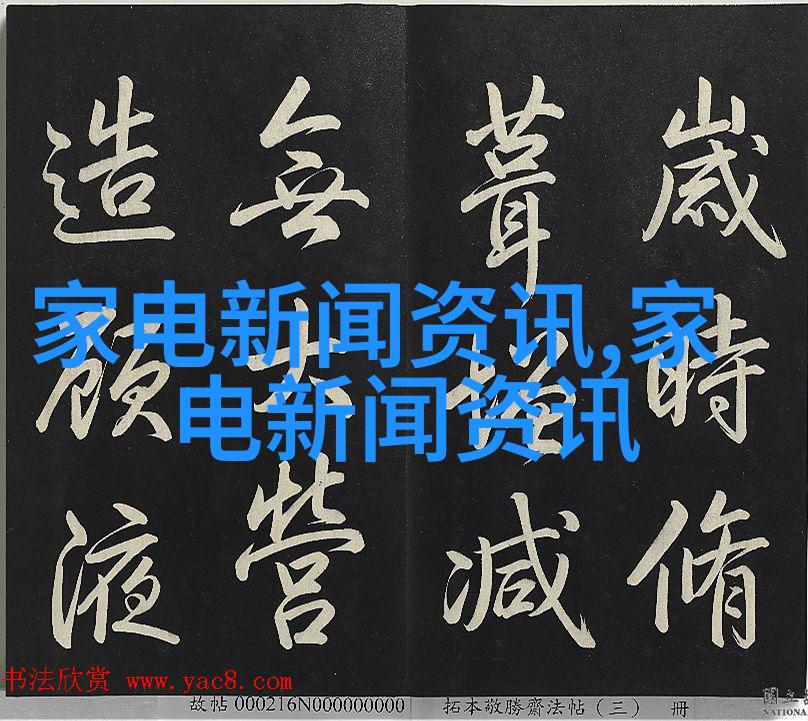 歲時脩
葺減
無營
造顧液
家电新闻资讯,家
电新闻资讯
书法欣赏 www.yac8.com
故帖 000216N000000000 拓本敬勝齋法帖（三） 冊
國立
NATIONA